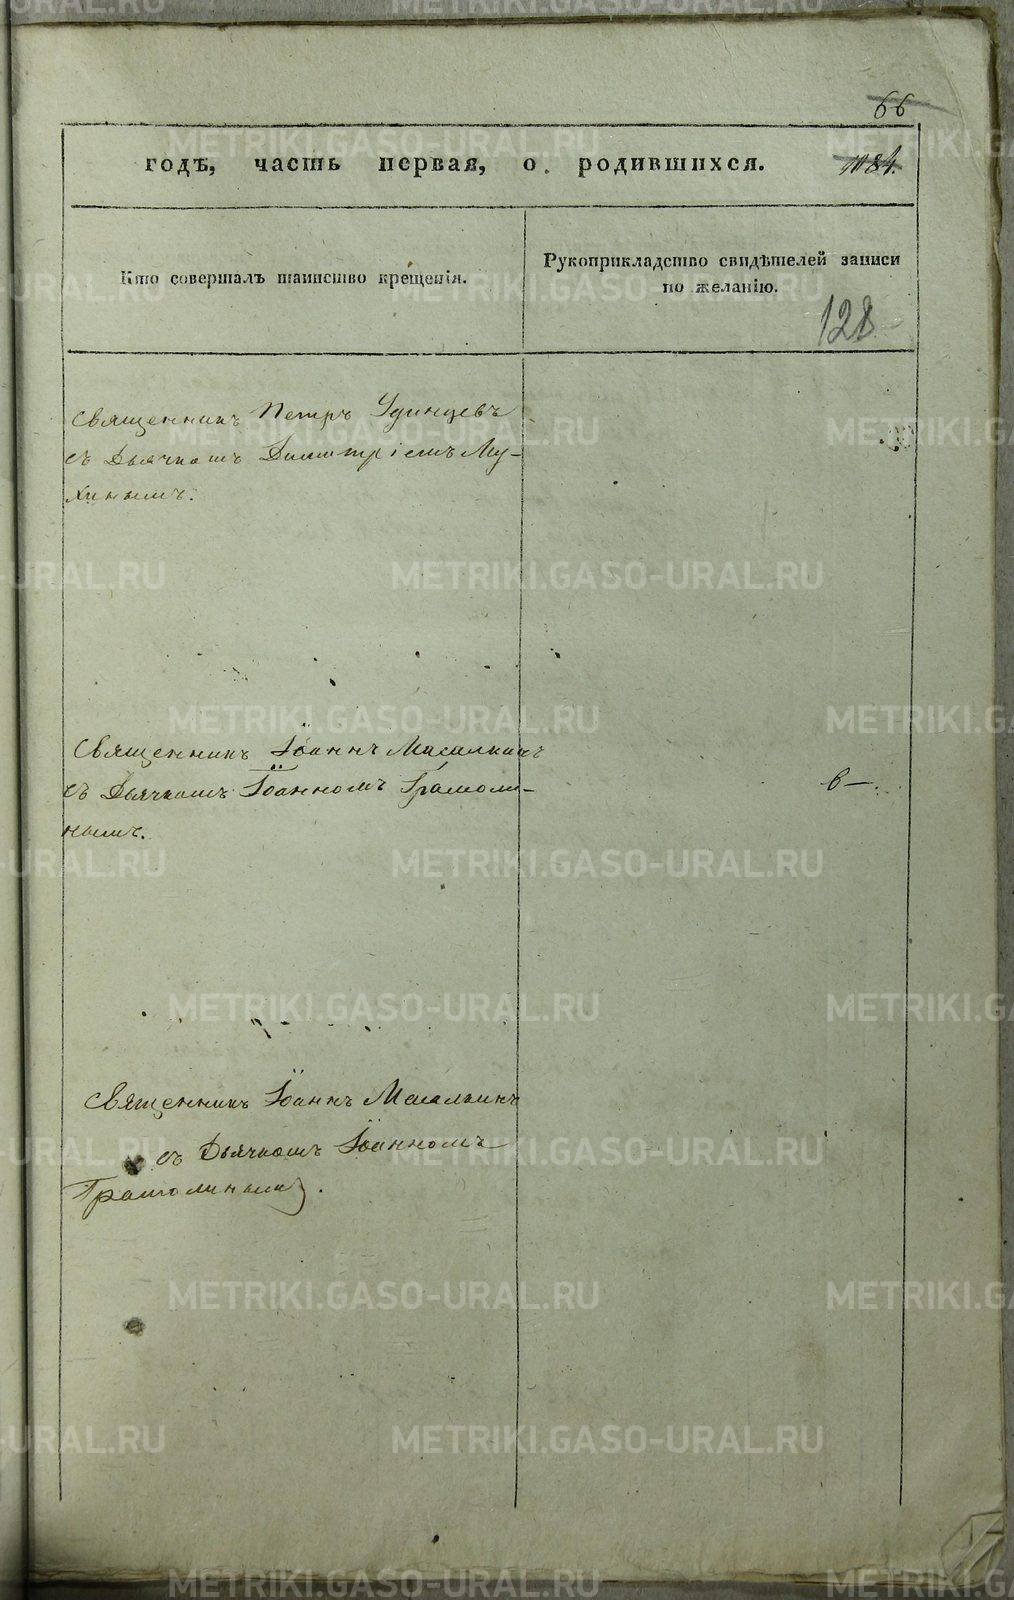 66
годѣ, часть первая, о родившихся.
1084.
Кто совершалъ таинство крещенія.
Рукоприкладство свидѣтелей записи
по желанію.
128
Священникъ Петръ Удинцевъ
съ Дьячкомъ Димитріемъ Му-
хинымъ.
Священникъ Іоаннъ Масалкинъ
съ Дьячкомъ Іоанномъ Грамоли-
нымъ.
в-.
Священникъ Іоаннъ Масалкинъ
съ Дьячкомъ Іоанномъ
Грамолинымъ.
METRIKI.GASO-URAL.RU